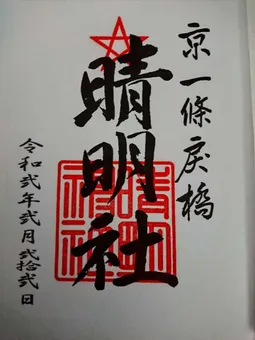 京一條戻橋
晴明社
晴明神社
令和弐年弐月弐拾弐日